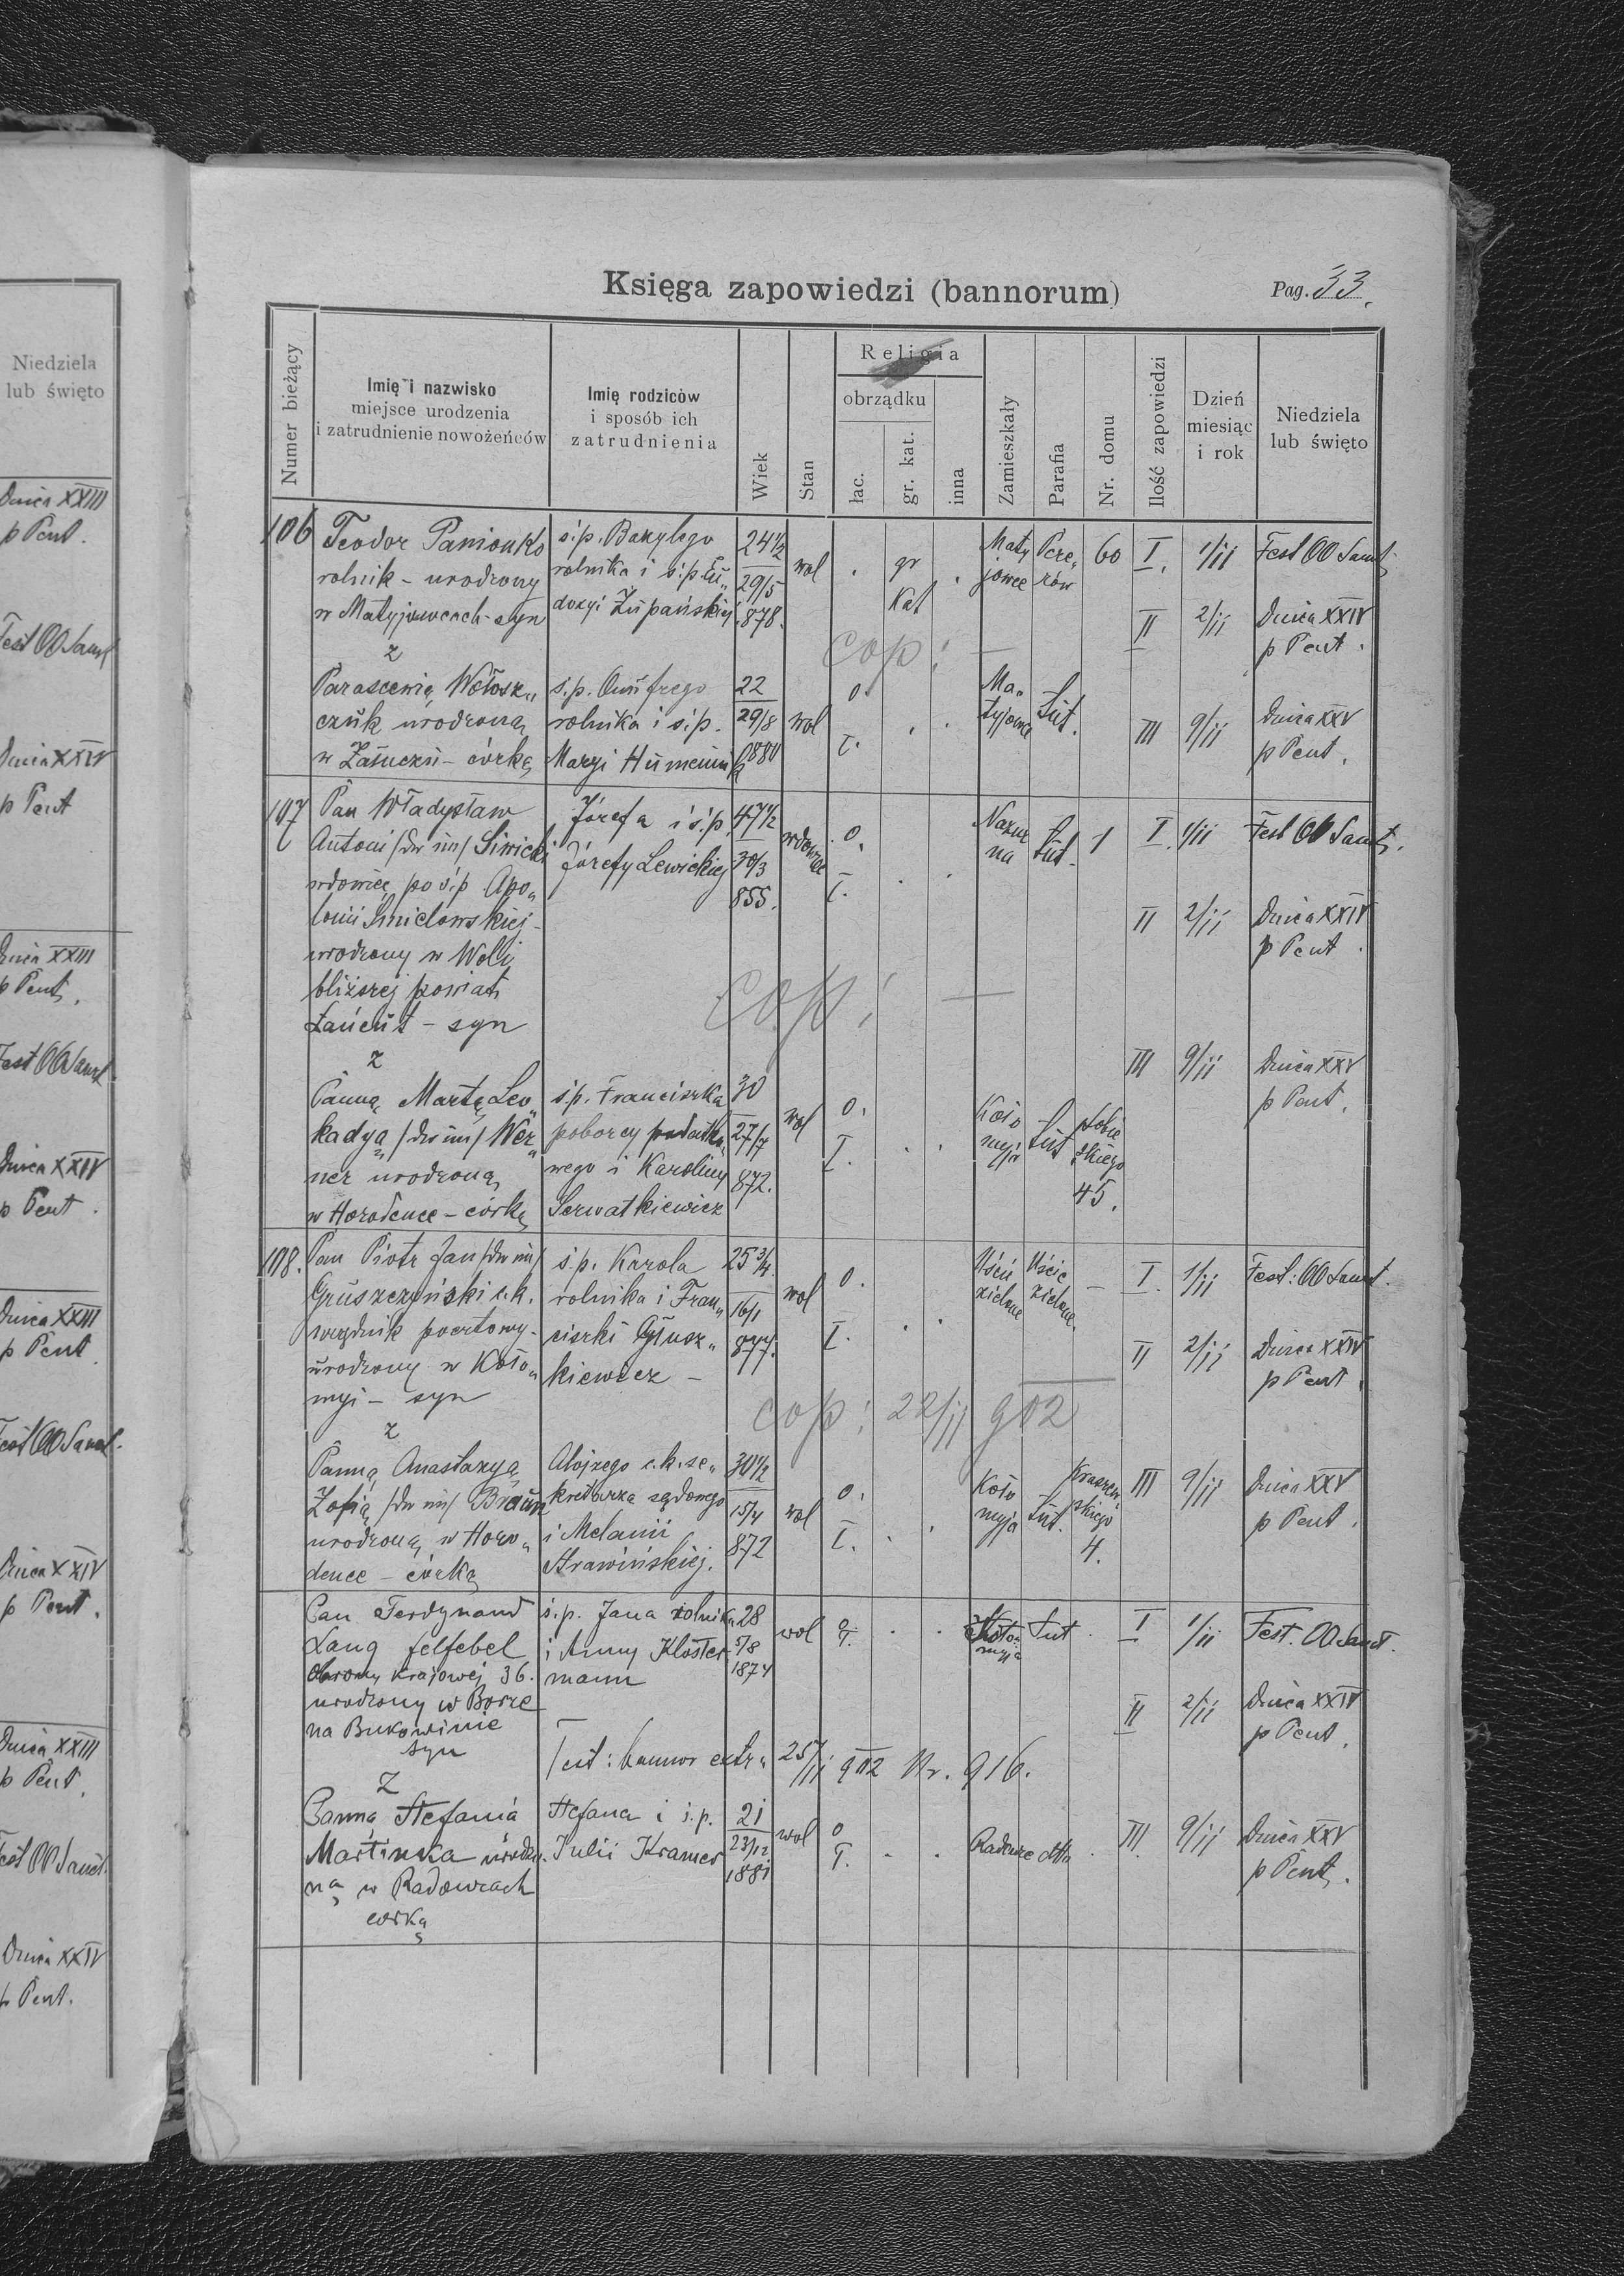 Niedziela
lub święto
Dnica XXIII
p Pent.
Fest OO Sanct
Dnica XXIV
p Pent
Dnica XXIII
p Pent.
Fest OO Sanct.
Dnica XXIV
p Pent.
Dnica XXIII
p Pent.
Fest OO Sanct.
Dnica XXIV
p Pent.
Dnica XXIII
p Pent.
Fest OO Sanct.
Dnica XXIV
p Pent.
Księga zapowiedzi (bannorum)
Pag. 33.
Numer bieżący
Imię i nazwisko
miejsce urodzenia
i zatrudnienie nowożeńców
Imię rodziców
i sposób ich
zatrudnienia
Wiek
Stan
Religia
obrządku
łac.
gr. kat.
inna
Zamieszkały
Parafia
Nr. domu
Ilość zapowiedzi
Dzień
miesiąc
i rok
Niedziela
lub święto
106
Teodor Panionko
rolnik - urodzony
w Matyjowcach - syn
z
ś.p. Bazylego
rolnika i ś.p. Eu„
dozyi Żupańskiej
24 1/2
29/5
878.
wol
gr
Kat
Maty
jowce
Pere„
rów
60
I.
1/11
Fest OO Sanct.
II
2/11
Dnica XXIV
p Pent.
cop: —
Parascewią Wołosz„
czuk urodzoną
w Załuczu - córką
ś.p. Onufrego
rolnika i ś.p.
Maryi Humeniuk
22
29/8
880
wol
o.
ł.
Ma„
tyjowce
tut.
III
9/11
Dnica XXV
p Pent.
107
Pan Władysław
Antoni /dw im/ Siwicki
wdowiec po ś.p Apo„
lonii Śmiełowskiej -
urodzony w Woli
bliższej powiat
Łańcut - syn
z
Józefa i ś.p
Józefy Lewickiej
47 1/2
30/3
855.
wdowiec
o.
ł.
Nazur
na
tut.
1
I.
1/11
Fest OO Sanct.
II
2/11
Dnica XXIV
p Pent.
cop: —
III
9/11
Dnica XXV
p Pent.
Panną Martą Leo„
kadyą /dw im/ Wer„
ner urodzoną
w Horodence - córką
ś.p. Franciszka
poborcy podatko„
wego i Karoliny
Serwatkiewicz
30
27/7
872.
wol
o.
ł.
Koło
myja
tut
Sobie
skiego
45.
108.
Pan Piotr Jan /dw im/
Gruszczyński c.k.
urzędnik pocztowy -
urodzony w Koło„
myi - syn
z
ś.p. Karola
rolnika i Fran„
ciszki Głusz„
kiewicz -
25 3/4
16/1
877.
wol
o.
ł.
Uście
zielone
Uście
zielone.
—
I.
1/11
Fest: OO Sanct.
II
2/11
Dnica XXIV
p Pent.
cop: 22/11 902
Panną Anastazyą
Zofią /dw im/ Braun
urodzoną w Horo„
dence - córką
Alojzego c.k. se„
kretarza sądowego
i Melanii
Strawińskiej.
30 1/2
15/4
872
wol
o.
ł.
Koło
myja
tut.
Kraszew
skiego
4.
III
9/11
Dnica XXV
p Pent.
Pan Ferdynand
Lang felfebel
obrony krajowej 36.
urodzony w Borze
na Bukowinie
syn
Z
ś.p. Jana rolnika
i Anny Kloster
mann
28
5/8
1874
wol
o
ł.
Koło
myja
tut
I
1/11
Fest. OO Sanct.
II
2/11
Dnica XXIV
p Pent.
Test: bannor extr. 25/11 902 Nr. 916.
Panną Stefania
Martinka urodzo.
ną w Radowcach
córką
Stefana i ś.p.
Julii Kramer
21
23/12
1881
wol
o
ł.
Radowce
III.
9/11
Dnica XXV
p Pent.